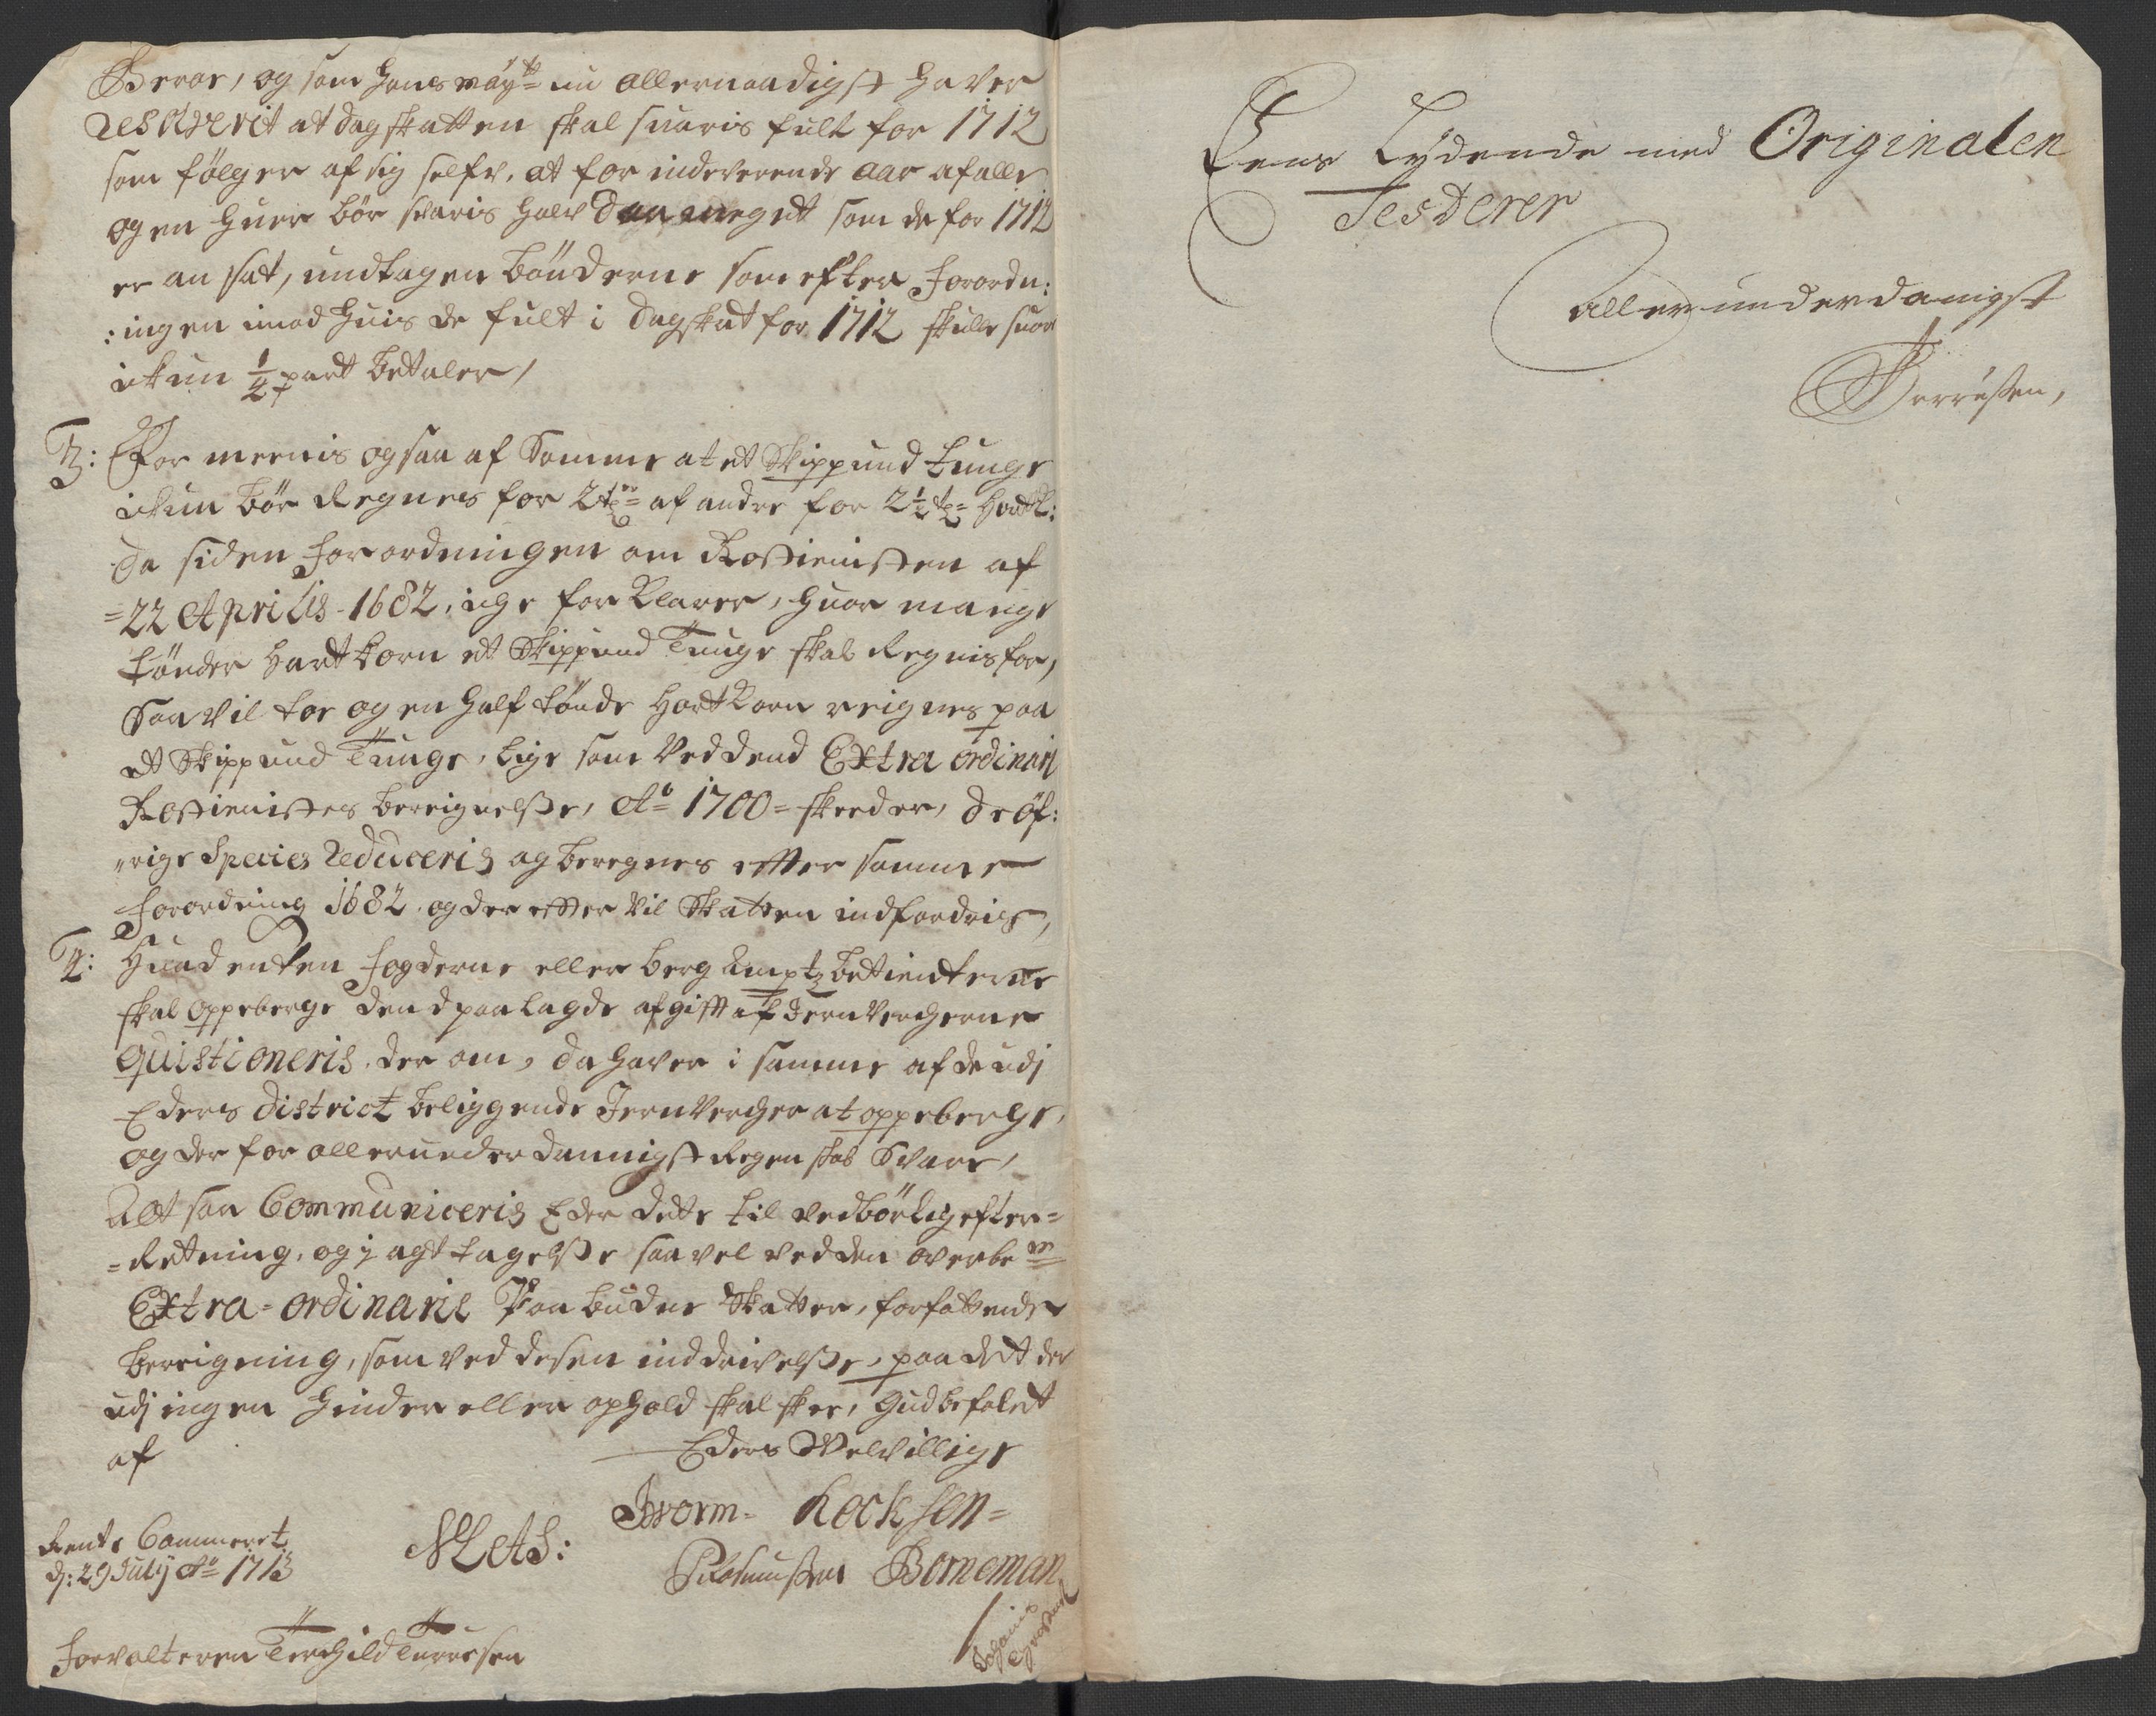 Beror, og som hans Mayts nu allernaadigst haver
resolverit at dagskatten skal suaris fult for 1712
som følger af sig selfv, at for indeverende aar af alle
og en huer bør svaris halv saa meget som de for 1712
er an sat, undtagen bønderne som efter forordn:
:ingen imod huis de fult i dagskat for 1712 skulle suare
ikun 1/4 part betaler,
3: For meenis ogsaa af Somme at et Skippund tunge
ikun bør Regnes for 2 tr af andre for 2 1/2 tr hartk:
da siden forordningen om Rostienisten af
=22 Aprilis 1682, iche forklarer, huor mange
tønder hartkorn et Skippund Tunge skal Regnis for,
saa vil toe og en half tønde hartkorn reignes paa
et Skippund Tunge, lige som ved dend Extra ordinari
Rostienistes bereignelsse, Ao 1700 = skeeder, de øf:
"rige Species Reduceris og beregnes effter samme
forordning 1682 og der effter vil Skatten indfordris,
4: Huad enten fogderne eller berg Amptz betienterne
skal oppeberge dend paalagde afgifft af Jernvercherne
quistioneris der om, da haver i samme af de udj
Eders district beliggende Jernvercher at oppeberge,
og der for allerunderdannigst Regenskab Svare,
Alt saa Communiceris Eder dette til vedbørlig efter=
=Retning, og j agttagelsse saa vel ved den overbem
Extra=ordinarie Paabudne Skatter, forfattende
bereigning, som ved desen inddrivelsse, paa det der
udj ingen hinder eller ophold skal skee, Gud befalet
af
Eders Velvillige
Jworm= Kocksen=
Rasmussen Borneman
Rente Cammeret
d: 29 July Ao 1713
Forvalteren Terchild Turresen
Eens Lydende med Originalen
Testerer
allerunderdanigst
Turresen,